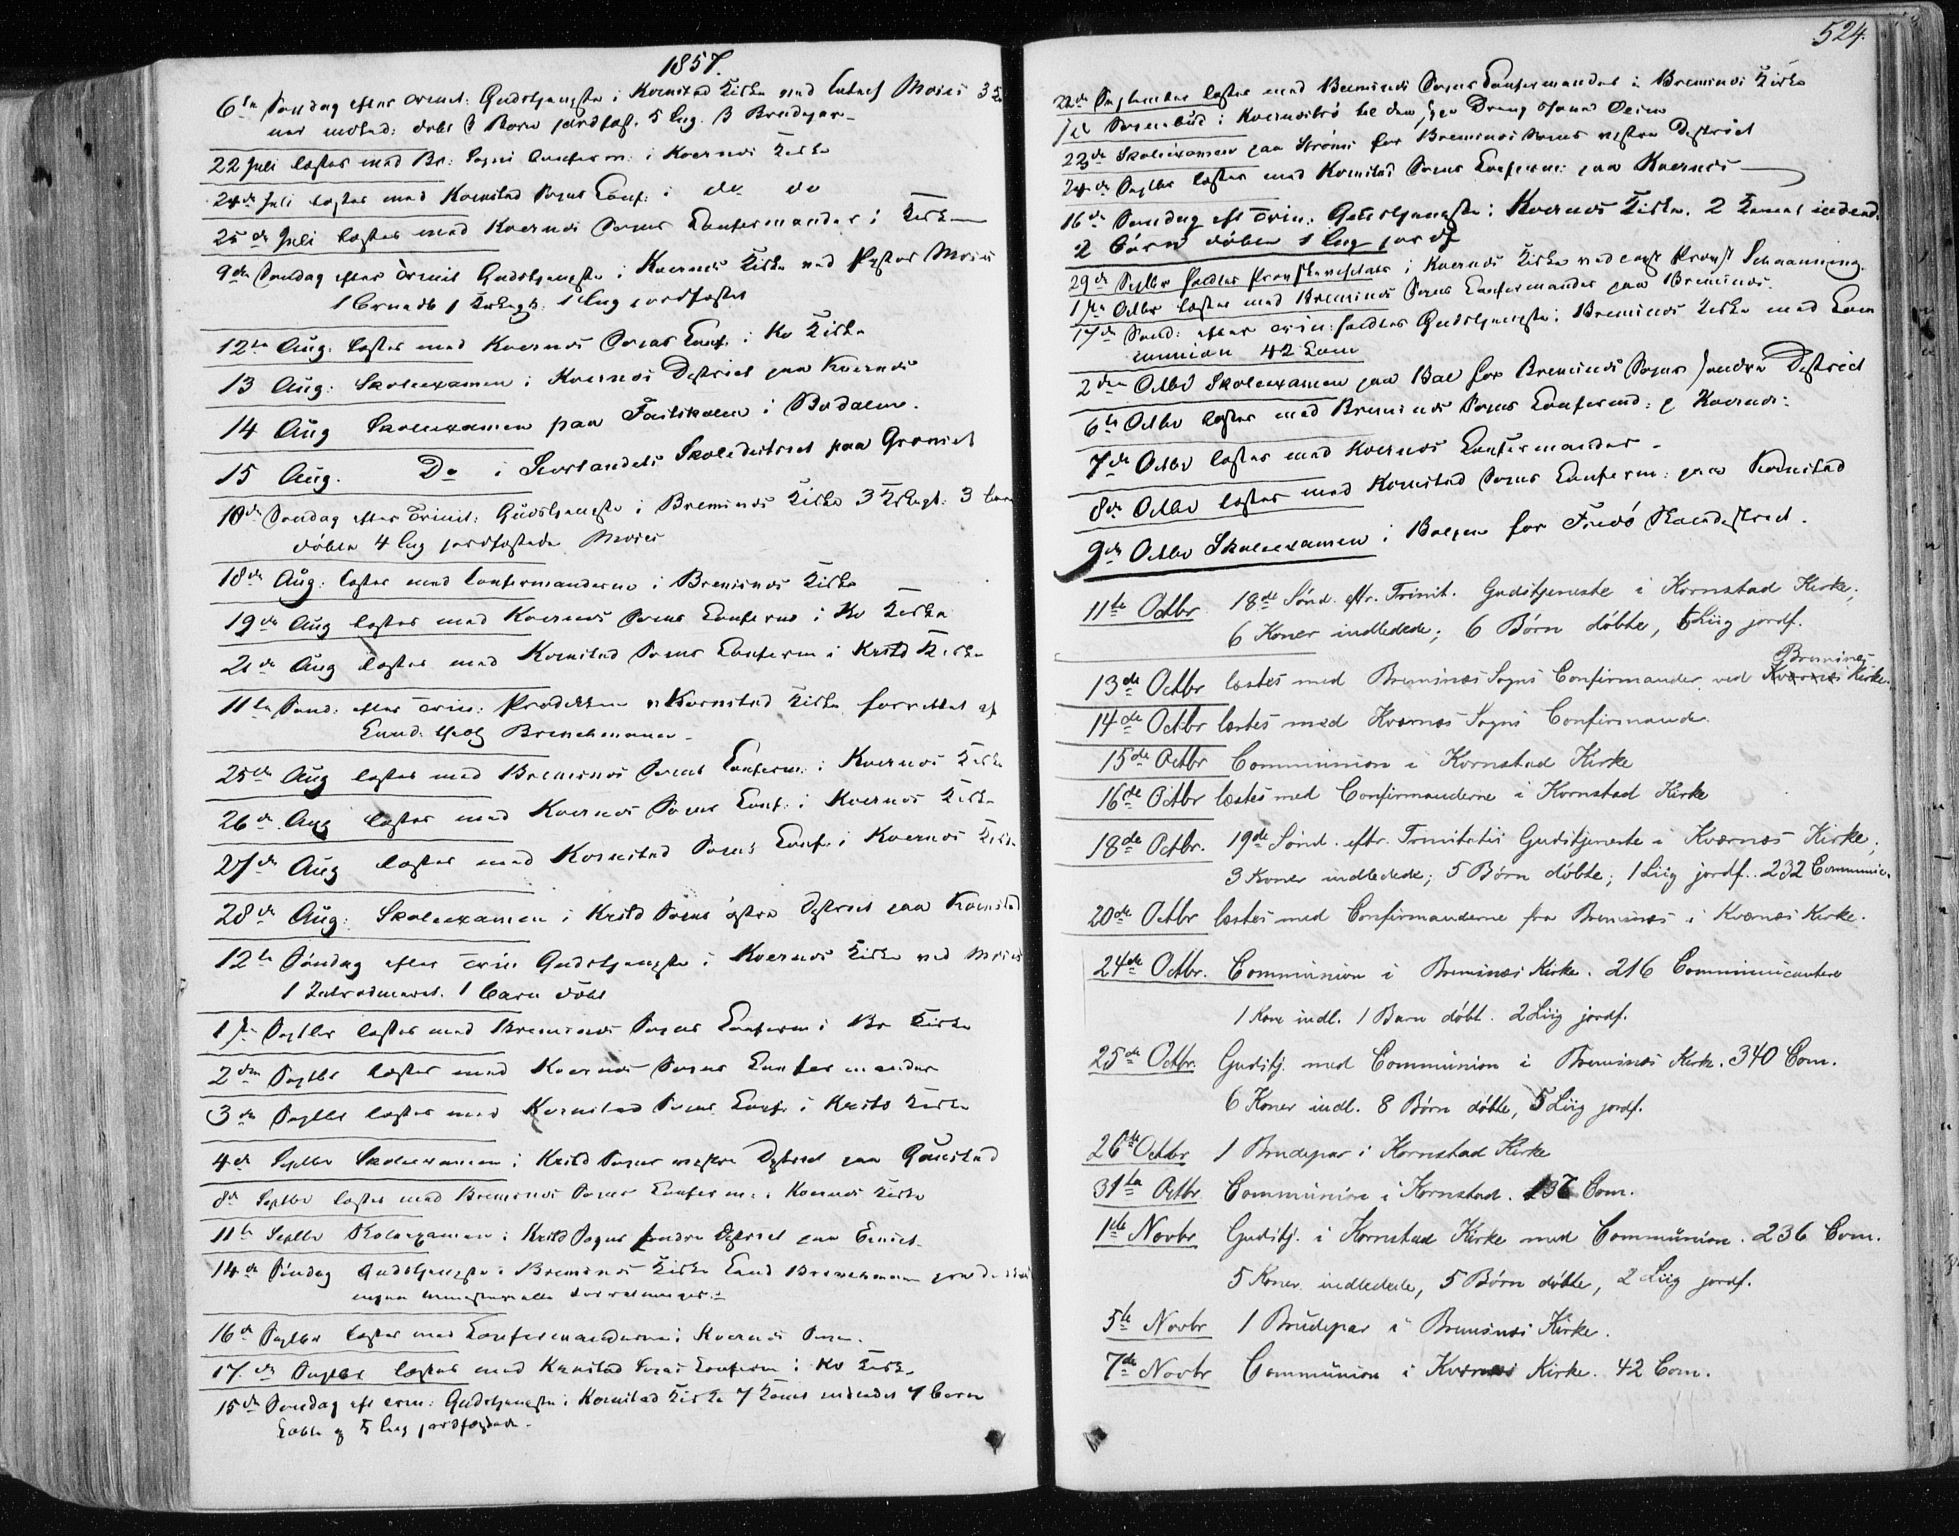 1857.
6te Søndag efter Trinit: Gudstjeneste i Kornstad Kirke ved Moses 3
5 Liig. 3 Brudepar
22 Juli læstes med Br: Sogns Conferm: i Kvernes Kirke
24de Juli læstes med Kornstad Sogns Conf: i do do
25de Juli læstes med Kvernes Sogns Confermander i Kirken
9de Søndag efter Trinit Gudstjeneste i Kvernes Kirke ved Pastor Moses
1 Kirkeg. 1 Liig jordfæstet
12te Aug: læstes med Kvernes Sogns Conf. i Kv Kirke
13 Aug: Skoleexamen i Kvernes Destrict paa Kvernes
14 Aug Skoleexamen paa Fastskolen i Bodalen.
15 Aug. Do i Skoledistrict paa
10de Søndag efter Trinit: Gudstjeneste i Bremsnes Kirke 3 3
døbte 4 Liig jordfæstede Moses
18de Aug: læstes med Confermanderne i Bremsnes Kirke
19de Aug læstes med Kvernes Sogns Conferm i Kv Kirke
21de Aug læstes med Kornstad Sogns Conferm i Krstd Kirke
11te Sønd: efter Trin: Prædiken i Kornstad Kirke forrettet af
Cand:
25de Aug læstes med Bremsnes Sogns Conferm: i Kvernes Kirke
26de Aug læstes med Kvernes Sogns Conf: i Kvernes Kirke
27de Aug læstes med Kornstad Sogns Conf. i Kvernes Kirke
28de Aug: Skoleexamen i Krstd Sogns østre Destrict paa Kornstad
12te Søndag efter Trin Gudstjeneste i Kvernes Kirke ved Moses
1 1 Barn døbt
1ste Septbr læstes med Bremsnes Sogns Conferm i Br Kirke
2den Septbr læstes med Kvernes Sogns Confermander
3de Septbr læstes med Kornstad Sogns Conf. i Krstd Kirke
4de Septbr Skoleexamen i Krstd Sogns vestre Destrict paa
8de Septbr læstes med Bremsnes Sogns Conferm: i Kvernes Kirke
11te Septbr Skoleexamen i Krstd Sogns søndre Destrict paa
14de Søndag Gudstjeneste i Bremsnes Kirke Cand
ingen ministerielle Forretninger.
16de Septbr læstes med Confermanderne i Kvernes Sogn.
17de Septbr læstes med Kornstad Sogns Conferm: i Kv Kirke
15de Søndag eft Trin: Gudstjeneste i Kornstad Kirke 7 Koner indledet 7 Børn
døbte og 5 Liig jordfæstede.
524.
22de September læstes med Bremsnes Sogns Confermander i Bremsnes Kirke
23de Skoleexamen paa Strømi for Bremsnes Sogns vestre Destrict
24de Septbr læstes med Kornstad Sogns Conferm: paa Kvernes
16de Søndag eft Trin: Gudstjeneste i Kvernes Kirke. 2 Koner indled.
2 Børn døbte 1 Liig jordf
29de Septbr holdtes Provstevisitats i Kvernes Kirke ved Provst Schaanning.
1ste Octbr læstes med Bremsnes Sogns Confermander paa Bremsnes.
17de Sønd: efter Trin: holdtes Gudstjeneste i Bremsnes Kirke med Com
munion 42 Com
2den Octbr Skoleexamen paa Bae for Bremsnes Sogns søndre Destrict
6te Octbr læstes med Bremsnes Sogns Conferend: p Kvernes:
7de Octbr læstes med Kvernes Confermander
8de Octbr læstes med Kornstad Sogns Conferm: paa Kornstad
9de Octbr Skoleexamen i Bolgen for Fredø Skoledestrict.
11te Octbr. 18de Sønd. eftr. Trinit. Gudstjeneste i Kornstad Kirke;
6 Koner indledede; 6 Børn døbte, 6 Liig jordf.
Bremsnes
13de Octbr læstes med Bremsnes Sogns Confirmander ved Kværnes Kirke.
14de Octbr læstes med Kværnes Sogns Confirmander.
15de Octbr Communion i Kornstad Kirke
16de Octbr læstes med Confirmanderne i Kornstad Kirke
18de Octbr. 19de Sønd. eftr. Trinitatis Gudstjeneste i Kværnes Kirke;
3 Koner indledede; 5 Børn døbte; 1 Liig jordf. 232 Communic.
20de Octbr læstes med Confirmanderne fra Bremsnes i Kværnes Kirke.
24de Octbr. Communion i Bremsnes Kirke. 216 Communicantere
1 Kone indl. 1 Barn døbt. 2 Liig jordf.
25de Octbr. Gudstj. med Communion i Bremsnes Kirke. 340 Com.
6 Koner indl. 8 Børn døbte, 5 Liig jordf.
26de Octbr 1 Brudepar i Kornstad Kirke
31te Octbr. Communion i Kornstad. 136 Com.
1ste Novbr Gudstj. i Kornstad Kirke med Communion. 236 Com.
5 Koner indledede, 5 Børn døbte, 2 Liig jordf.
5te Novbr 1 Brudepar i Bremsnes Kirke.
7de Novbr Communion i Kværnes Kirke. 42 Com.